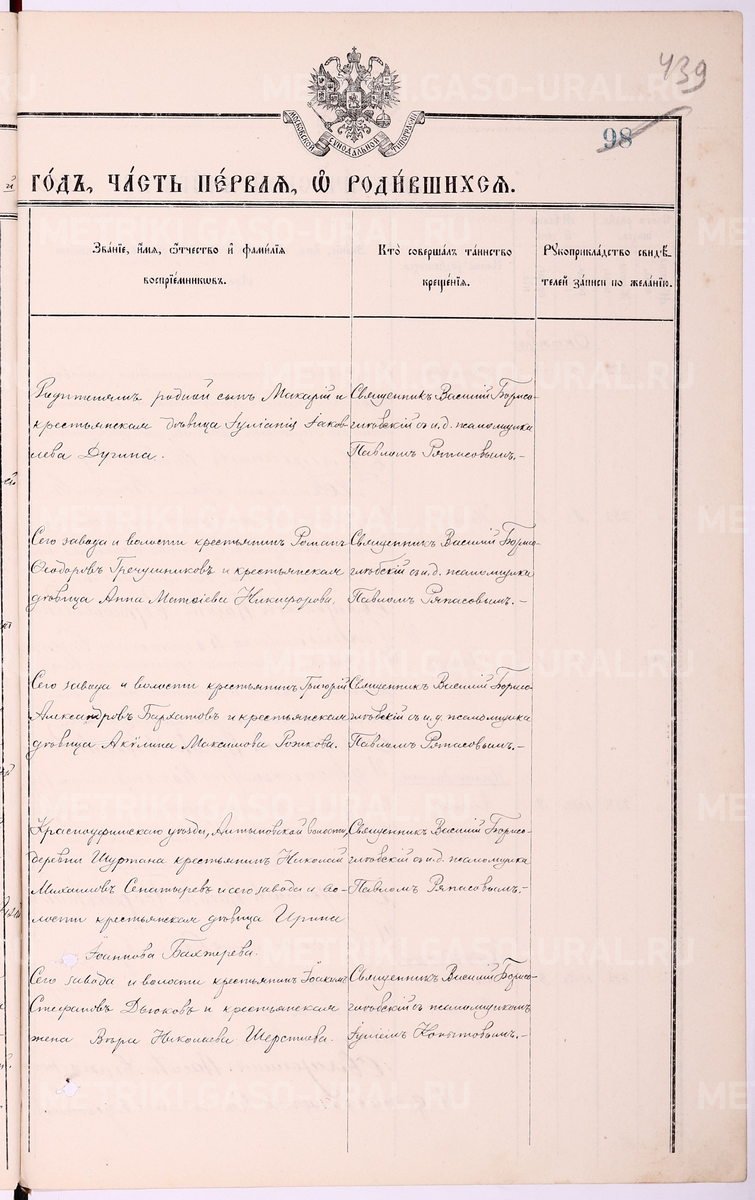 439
МОСКОВСКОЙ СѴНОДАЛЬНОЙ ТИПОГРАФІИ
98
го́дъ, ча́сть пе́рвая, ѡ҆ роди́вшихся.
Зва́нїе, и҆́мя, ѻ҆́тчество и҆ фами́лїя
воспрїе́мникѡвъ.
Кто̀ соверша́лъ та́инство
креще́нїя.
Рꙋкоприкла́дство свидѣ́-
телей за́писи по жела́нїю.
Родителямъ родной сынъ Макарій и
крестьянская дѣвица Іуліанія Іаков
лева Дугина.
Священникъ Василій Борисо-
глѣбскій съ и.д. псаломщика
Павломъ Ряпасовымъ.-
Сего завода и волости крестьянинъ Романъ
Ѳеодоровъ Гречушниковъ и крестьянская
дѣвица Анна Матѳіева Никифорова.
Священникъ Василій Борисо-
глѣбскій съ и.д. псаломщика
Павломъ Ряпасовымъ.-
Сего завода и волости крестьянинъ Григорій
Александровъ Бархатовъ и крестьянская
дѣвица Акулина Максимова Рожкова.
Священникъ Василій Борисо-
глѣбскій съ и.д. псаломщика
Павломъ Ряпасовымъ.-
Красноуфимскаго уѣзда, Алтыновской волости
деревни Шуртана крестьянинъ Николай
Михаиловъ Сенатыревъ и сего завода и во-
лости крестьянская дѣвица Ирина
Іоаннова Бахтерева.
Священникъ Василій Борисо-
глѣбскій съ и.д. псаломщика
Павломъ Ряпасовымъ.-
Сего завода и волости крестьянинъ Іоакимъ
Стефановъ Дьюковъ и крестьянская
жена Вѣра Николаева Шерстнева.
Священникъ Василій Борисо-
глѣбскій съ псаломщикомъ
Іуліемъ Копытовымъ.-
METRIKI.GASO-URAL.RU